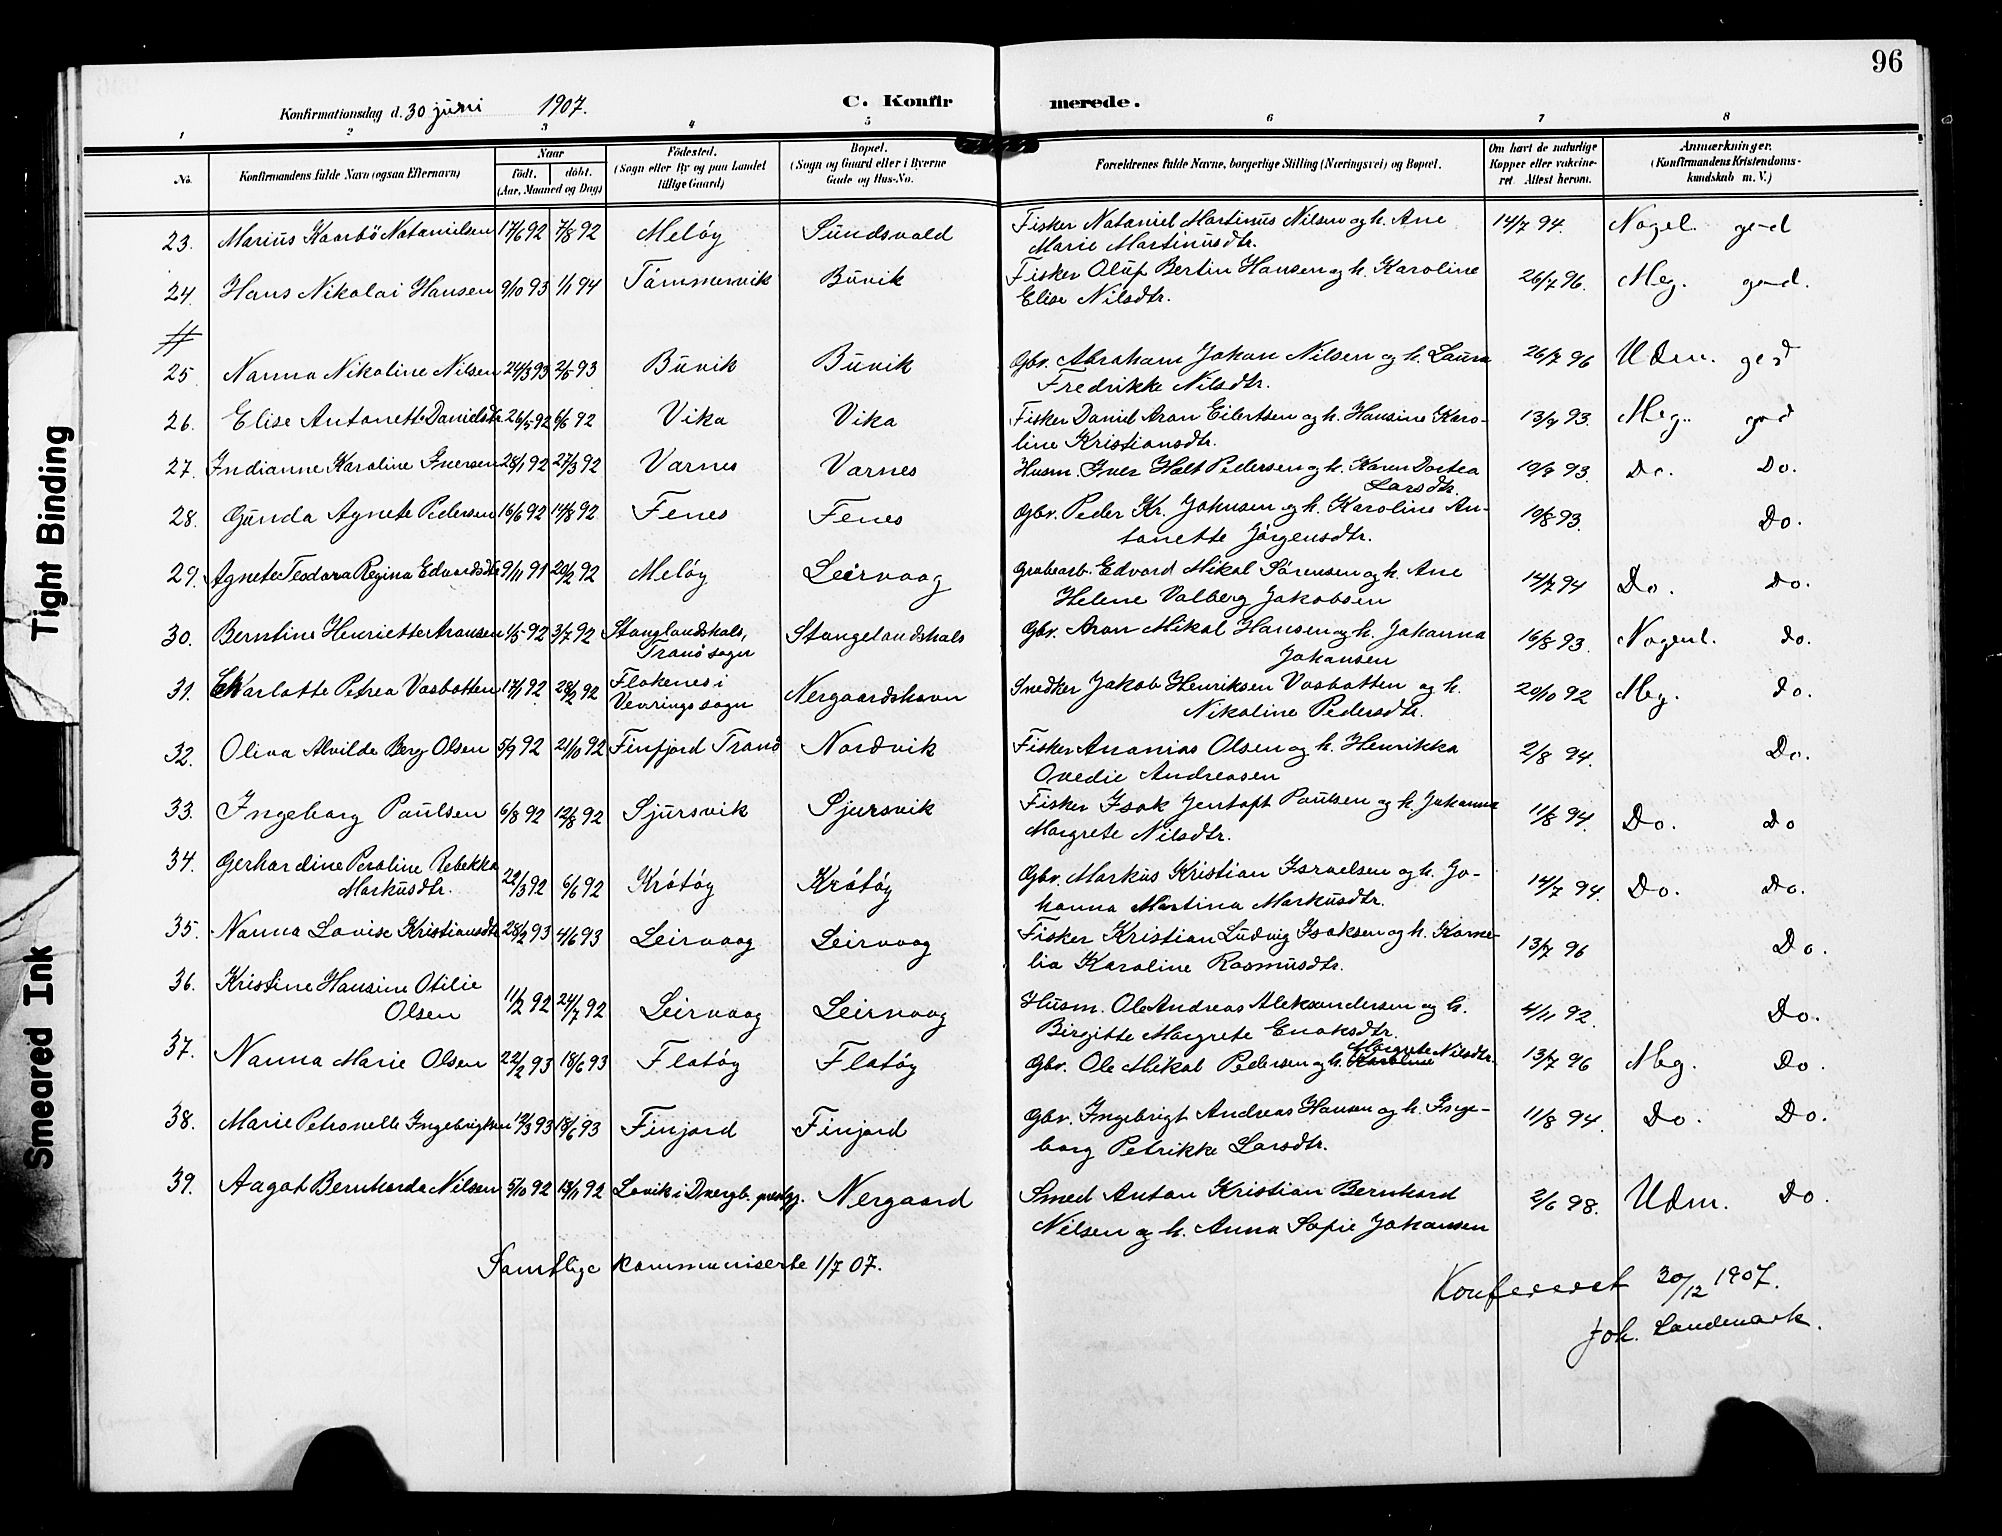 96
Konfirmationsdag d. 30 juni 1907.
C. Konfirmerede.
1 2 3 4 5 6 7 8
No. Konfirmandens fulde Navn (ogsaa Efternavn) Naar födt. döbt. (Aar, Maaned og Dag) Födested. (Sogn eller By og paa Landet tillige Gaard) Bopæl. (Sogn og Gaard eller i Byerne Gade og Hus-No. Forældrenes fulde Navne, borgerlige Stilling (Næringsvei) og Bopæl. Om havt de naturlige Kopper eller vakcineret Attest herom. Anmærkninger. (Konfirmandens Kristendomskundskab m. V.)
23. Marius Kaarbö Natanielsen 17/6 92 7/8 92 Melöy Sundsvold Fisker Nataniel Martinus Nilsen og h. Ane 14/7 94. Nogel. god
Marie Martinusdtr.
24. Hans Nikolai Hansen 9/10 93 1/1 94 Tömmervik Buvik Fisker Oluf Bertin Hansen og h. Karoline 26/7 96. Meg. god.
Elise Nilsdtr.
#
25. Nanna Nikoline Nilsen 24/3 93 2/5 93 Buvik Buvik Gbr. Abraham Johan Nilsen og h. Laura 26/7 96 Udm. god
Fredrikke Nilsdtr.
26. Elise Antonette Danielsdtr 26/5 92 6/6 92 Vika Vika Fisker Daniel Aron Eilertsen og h. Hansine Karo-
line Kristiansdtr. 13/7 93. Meg. god
27. Indianne Karoline Iversen 28/1 92 27/3 92 Varnes Varnes Husm. Iver Holt Pedersen og h. Karen Dortea 10/7 93. Do. Do.
Larsdtr.
28. Gunda Agnete Pedersen 16/6 92 14/8 92 Fenes Fenes Gbr. Peder Kr. Johnsen og h. Karoline An-
tonette Jörgensdtr. 10/8 93. Do.
29. Agnete Teodora Regina Edvardsdtr 9/11 91 20/2 92 Melöy Leirvaag Grubearb. Edvard Mikal Sörensen og h. Ane 14/7 94 Do. Do.
Helene Valberg Jakobsen
30. Berntine Henriette Aronsen 1/5 92 3/7 92 Stanglandshals, Tranö sogn Stangelandshals Gbr. Aron Mikal Hansen og h. Johanna 16/8 93. Nogenl. do.
Johansen
31. Karlotte Petrea Vasbotten 17/1 92 28/2 92 Flokenes i Vevrings sogn Nergaardshavn Snedker Jakob Henriksen Vasbotten og h. 20/10 92 Meg. Do.
Nikoline Pedersdtr.
32. Oliva Alvilde Berg Olsen 5/9 92 21/10 92 Finfjord Tranö Nordvik Fisker Ananias Olsen og h. Henrikka 2/8 94. Do.
Ovedie Andreasen
33. Ingeborg Paulsen 6/8 92 12/8 92 Sjursvik Sjursvik Fisker Isak Jentoft Paulsen og h. Johanna 11/8 94. Do. Do
Margrete Nilsdtr.
34. Gerhardine Peroline Rebekka
Markusdtr. 22/3 92 6/6 92 Krötöy Krötöy Gbr. Markus Kristian Israelsen og h. Jo-
hanna Martina Markusdtr. 14/7 94. Do. Do.
35. Nanna Lovise Kristiansdtr 28/2 93 4/6 93 Leirvaag Leirvaag Fisker Kristian Ludvig Isaksen og h. Korne-
lia Karoline Rasmusdtr. 13/7 96 Do.
36. Kristine Hansine Otilie
Olsen 11/2 92 24/7 92 Leirvaag Leirvaag Husm. Ole Andreas Aleksandersen og h. 4/11 92. Do.
Birgitte Margrete Enoksdtr.
37. Nanna Marie Olsen 22/2 93 18/6 93 Flatöy Flatöy Gbr. Ole Mikal Pedersen og h. Karoline Margrete Nilsdtr. 13/7 96 Meg. Do.
38. Marie Petronelle Ingebrigtsen 12/3 93 18/6 93 Finjord Finjord Gbr. Ingebrigt Andreas Hansen og h. Inge-
borg Petrikke Larsdtr. 11/8 94. Do. Do.
39. Aagot Bernharda Nilsen 5/10 92 13/11 92 Lovik i Dvergb. prestgj. Nergaard Smed Anton Kristian Bernhard 2/6 98. Udm. Do.
Nilsen og h. Anna Sofie Johansen
Samtlige kommuniserte 1/7 07.
Konfereret 30/12 1907.
Joh. Landmark.
Tight Binding
Smeared Ink